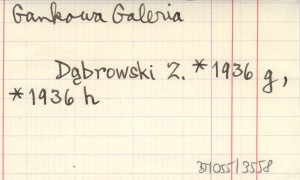 Gankowa Galeria
Dąbrowski Z. *1936 g,
*1936 h
37/055/3558